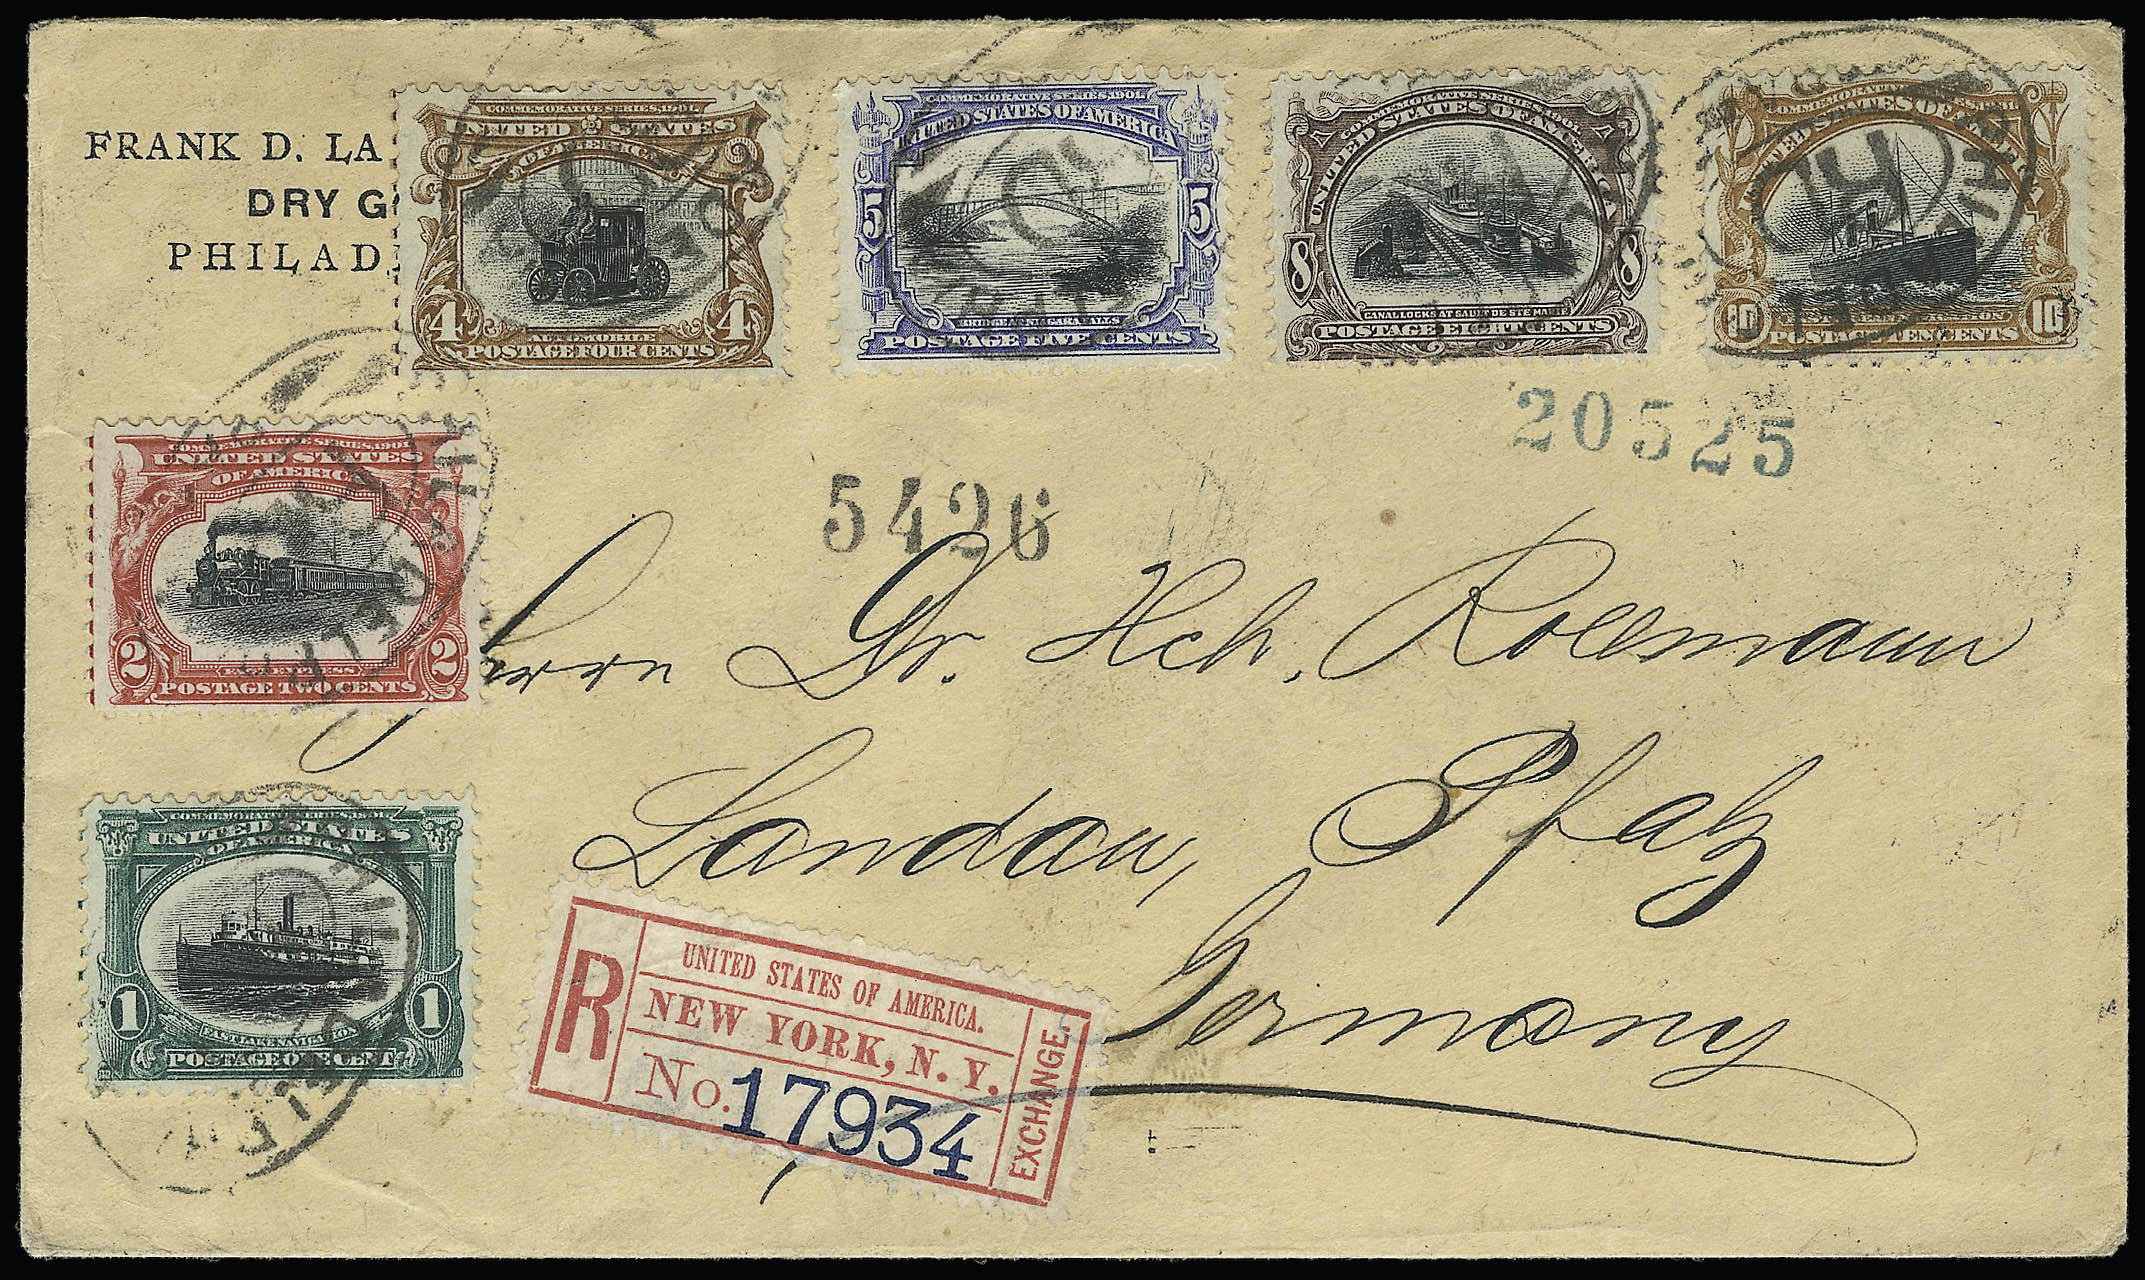 FRANK D. LA
DRY G
PHILAD
COMMEMORATIVE SERIES, 1901.
UNITED STATES
OF AMERICA
4 4
AUTOMOBILE
POSTAGE FOUR CENTS
COMMEMORATIVE SERIES, 1901.
UNITED STATES OF AMERICA
5 5
BRIDGE AT NIAGARA FALLS
POSTAGE FIVE CENTS
COMMEMORATIVE SERIES 1901.
UNITED STATES OF AMERICA
8 8
CANAL LOCKS AT SAULT DE STE MARIE
POSTAGE EIGHT CENTS
COMMEMORATIVE SERIES, 1901.
UNITED STATES OF AMERICA
10 10
POSTAGE TEN CENTS
20525
5426
COMMEMORATIVE SERIES, 1901.
UNITED STATES
OF AMERICA
2 2
POSTAGE TWO CENTS
Herrn Dr. Hch. Rollmann
Landau, Pfalz
Germany
COMMEMORATIVE SERIES, 1901.
UNITED STATES
OF AMERICA
1 1
FAST LAKE NAVIGATION
POSTAGE ONE CENT
R
UNITED STATES OF AMERICA.
NEW YORK, N. Y.
No. 17934
EXCHANGE.